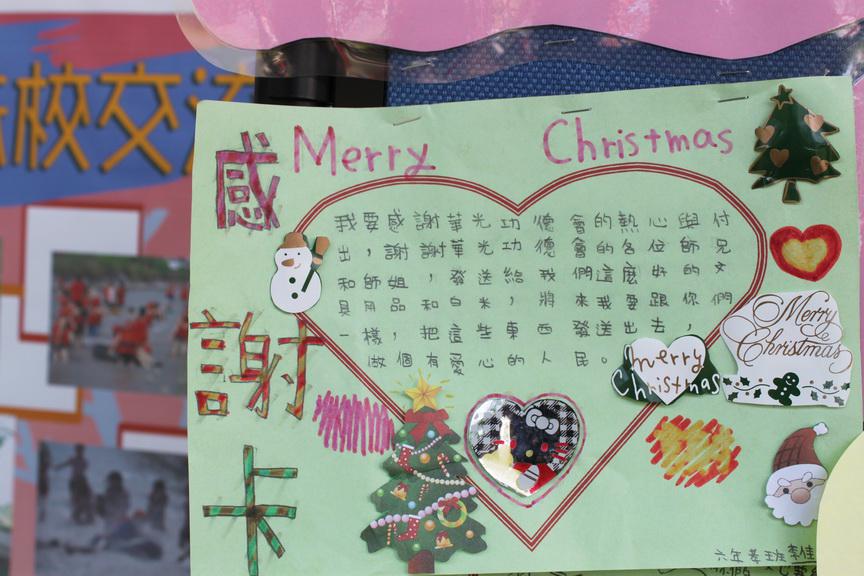 校交流
感謝卡
Merry Christmas
我要感謝華光功德會的熱心與付
出，謝謝華光功德會的各位師兄
和師姐，發送給我們這麼好的文
具用品和白米，將來我要跟你們
一樣，把這些東西發送出去，
做個有愛心的人民。
merry
Christmas
Merry
Christmas
六年孝班李佳